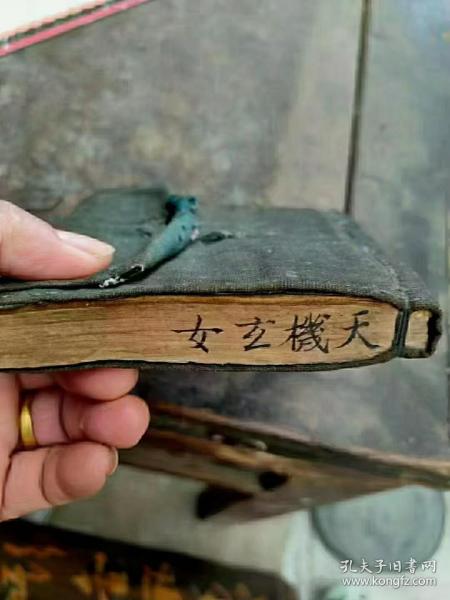 天機玄女
孔夫子旧书网
www.kongfz.com